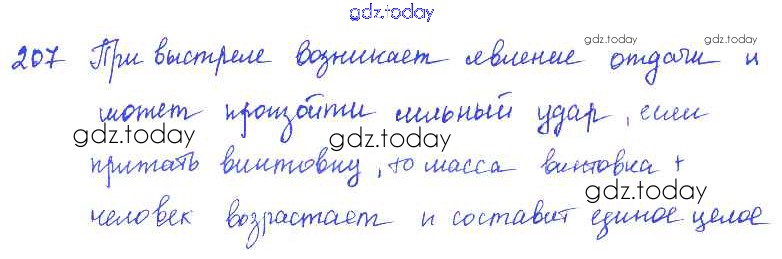 gdz.today
207 При выстреле возникает явление отдачи и
gdz.today
gdz.today
может произойти сильный удар, если
gdz.today
gdz.today
прижать винтовку, то масса винтовка +
gdz.today
человек возрастает и составит единое целое